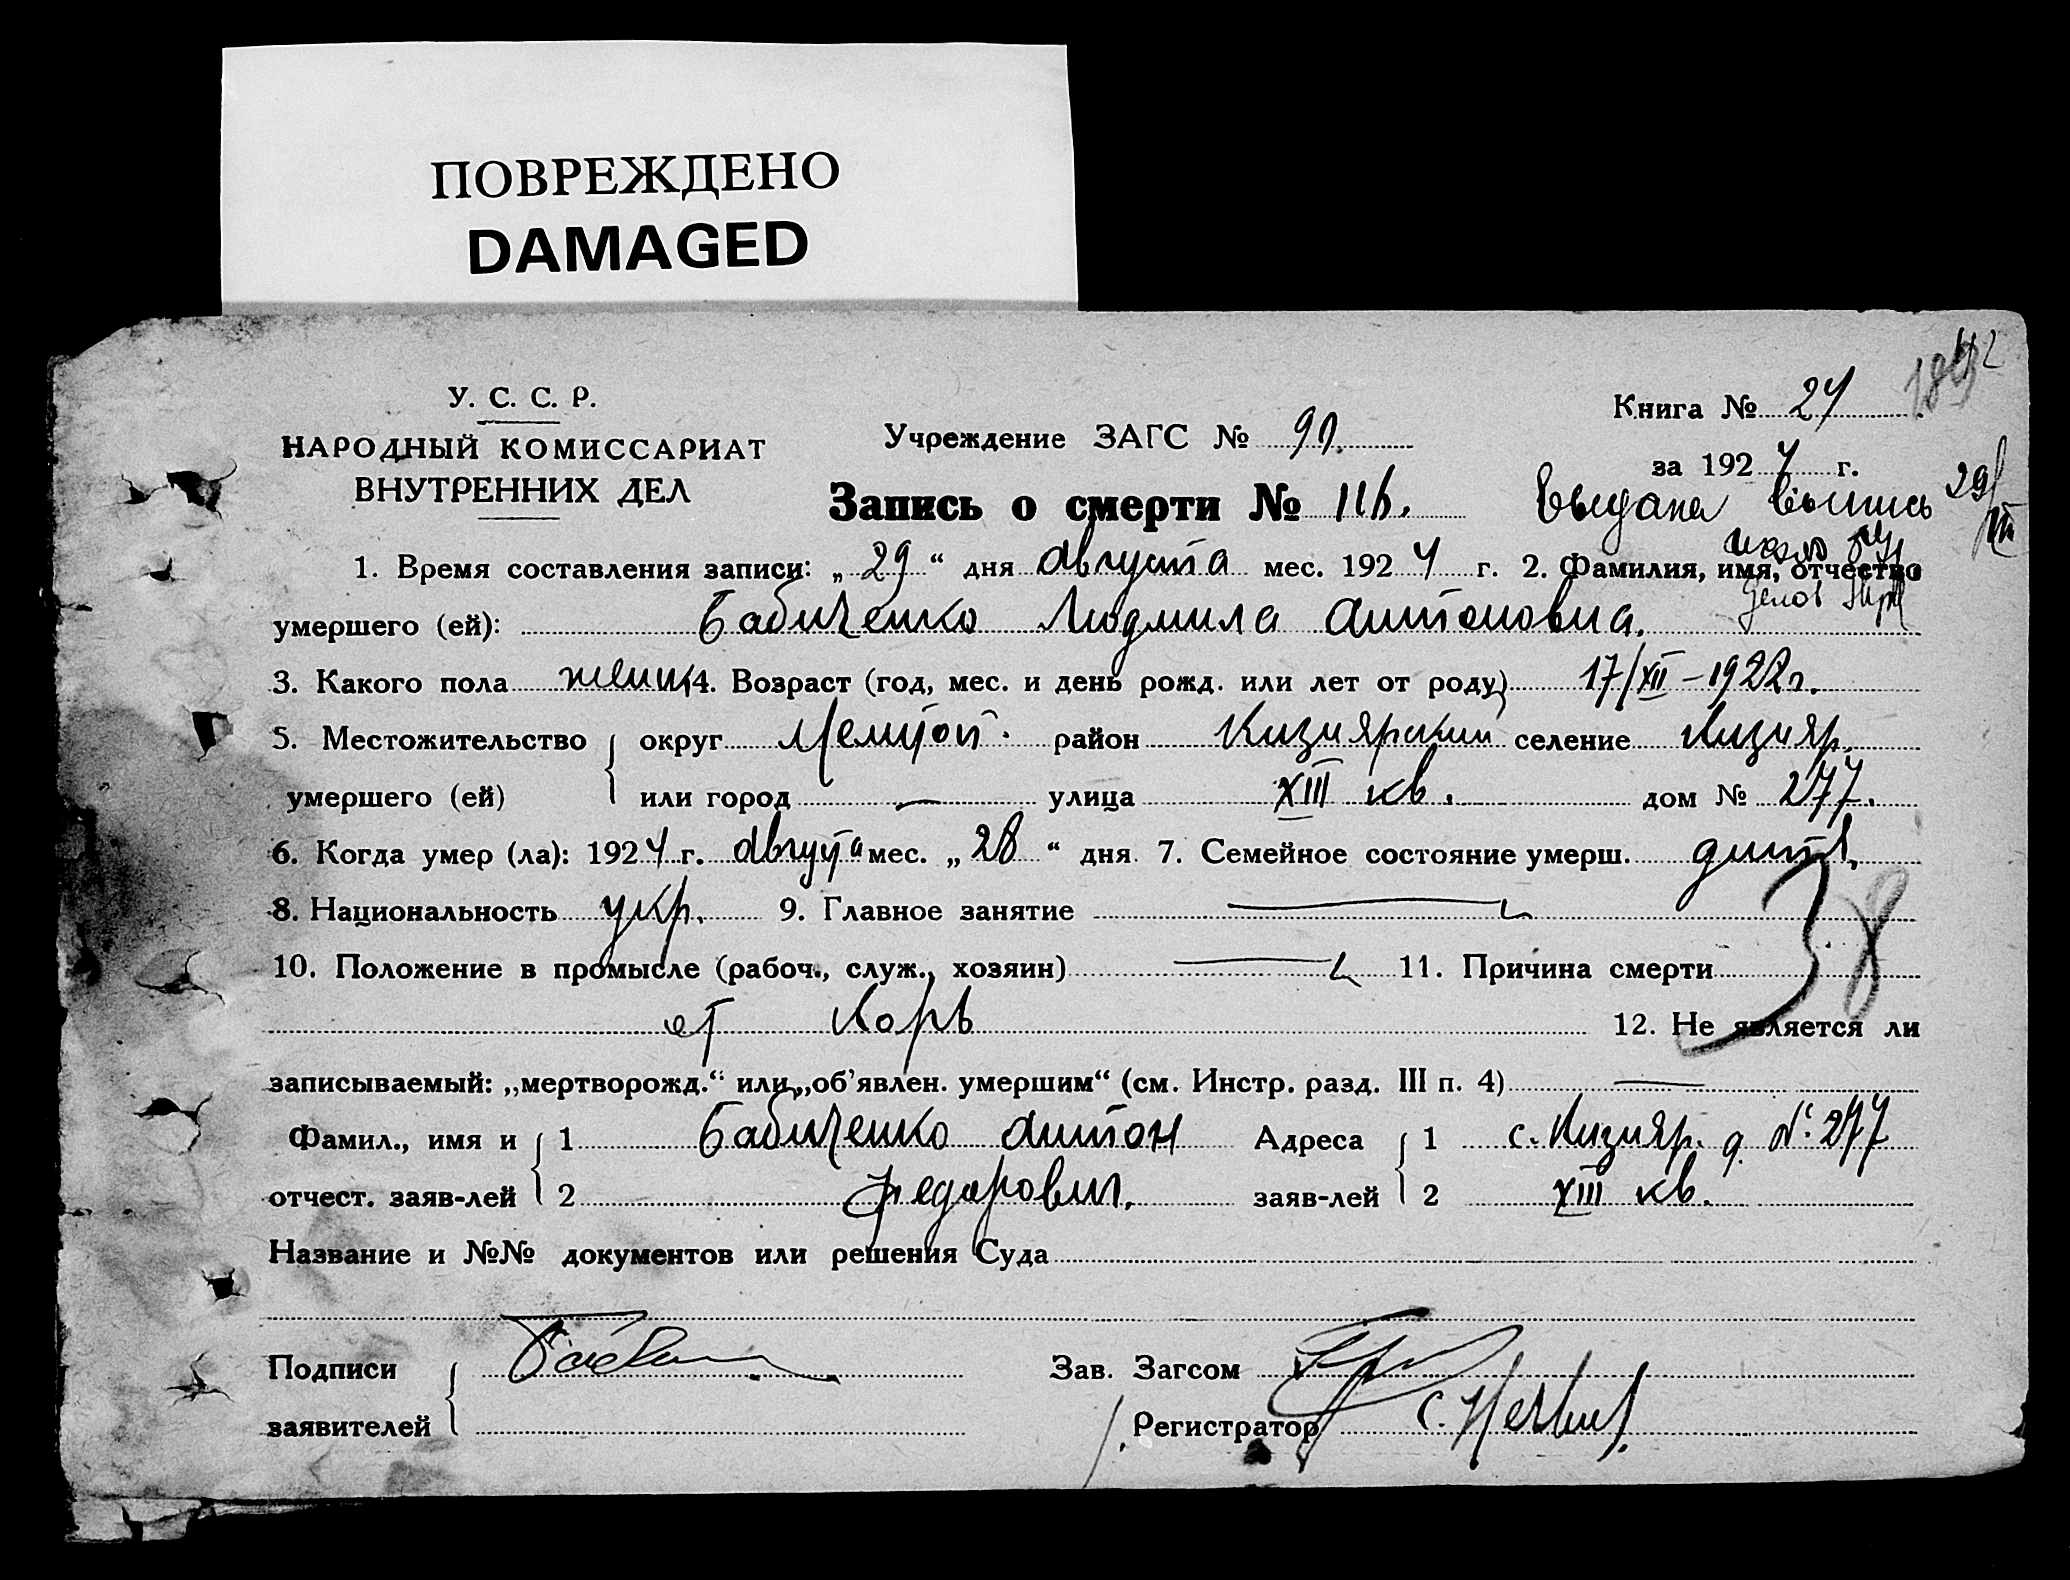 ПОВРЕЖДЕНО
DAMAGED
У. С. С. Р.
НАРОДНЫЙ КОМИССАРИАТ
ВНУТРЕННИХ ДЕЛ
Учреждение ЗАГС №
Книга № 24
за 1924 г.
Запись о смерти № 116.
Выдана выпись 29/VIII
1. Время составления записи: „29“ дня Августа мес. 1924 г. 2. Фамилия, имя, отчество
умершего (ей): Бабиченко Людмила Антоновна.
3. Какого пола женск 4. Возраст (год, мес. и день рожд. или лет от роду) 17/XII – 1922 г.
5. Местожительство округ Мелитоп. район Кизиярский селение Кизияр.
умершего (ей) или город — улица XIII кв. дом № 277.
6. Когда умер (ла): 1924 г. Августа мес. „28“ дня. 7. Семейное состояние умерш. дитя.
8. Национальность укр. 9. Главное занятие —
10. Положение в промысле (рабоч., служ., хозяин) — 11. Причина смерти 38
от Корь 12. Не является ли
записываемый: „мертворожд.“ или „об’явлен. умершим“ (см. Инстр. разд. III п. 4) —
Фамил., имя и 1 Бабиченко Антон Адреса 1 с. Кизияр. д. № 277
отчест. заяв-лей 2 Федорович. заяв-лей 2 XIII кв.
Название и №№ документов или решения Суда
Подписи Зав. Загсом
заявителей Регистратор